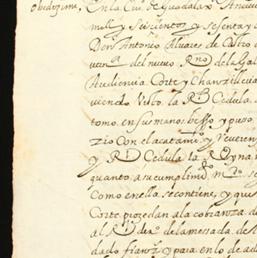 obidezima, En la Ciu. de Guadalax.
mill y seiscientos y sesenta y
Dor. Antonio Alvares de Castro
del nuevo Rno. de la Gal
Audiencia Corte y Chanzilleria
viendo Visto la Rl. Cedula
tomo en sus manos besso y puso
zio con el acatamto. y Reveren
y Rl. Cedula la Reyna
quanto a su cumplimto.
Como en ella se contiene, y que
Corte procedan a la cobranza d
al Rl. dro. de la mesada de
dado fianza y para en lo de ad